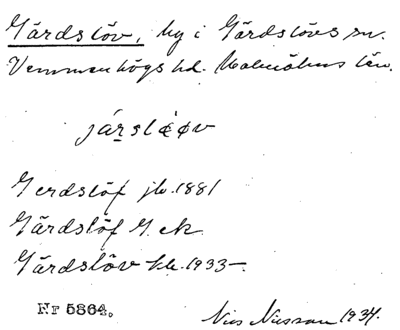 Gärdslöv, by i Gärdslövs sn.
Vemmenhögs hd. Malmöhus län.
Gerdslöf jb. 1881
Gärdslöf G. ek.
Gärdslöv kb. 1933-.
Nr 5864.
Nils Nilsson 1934.